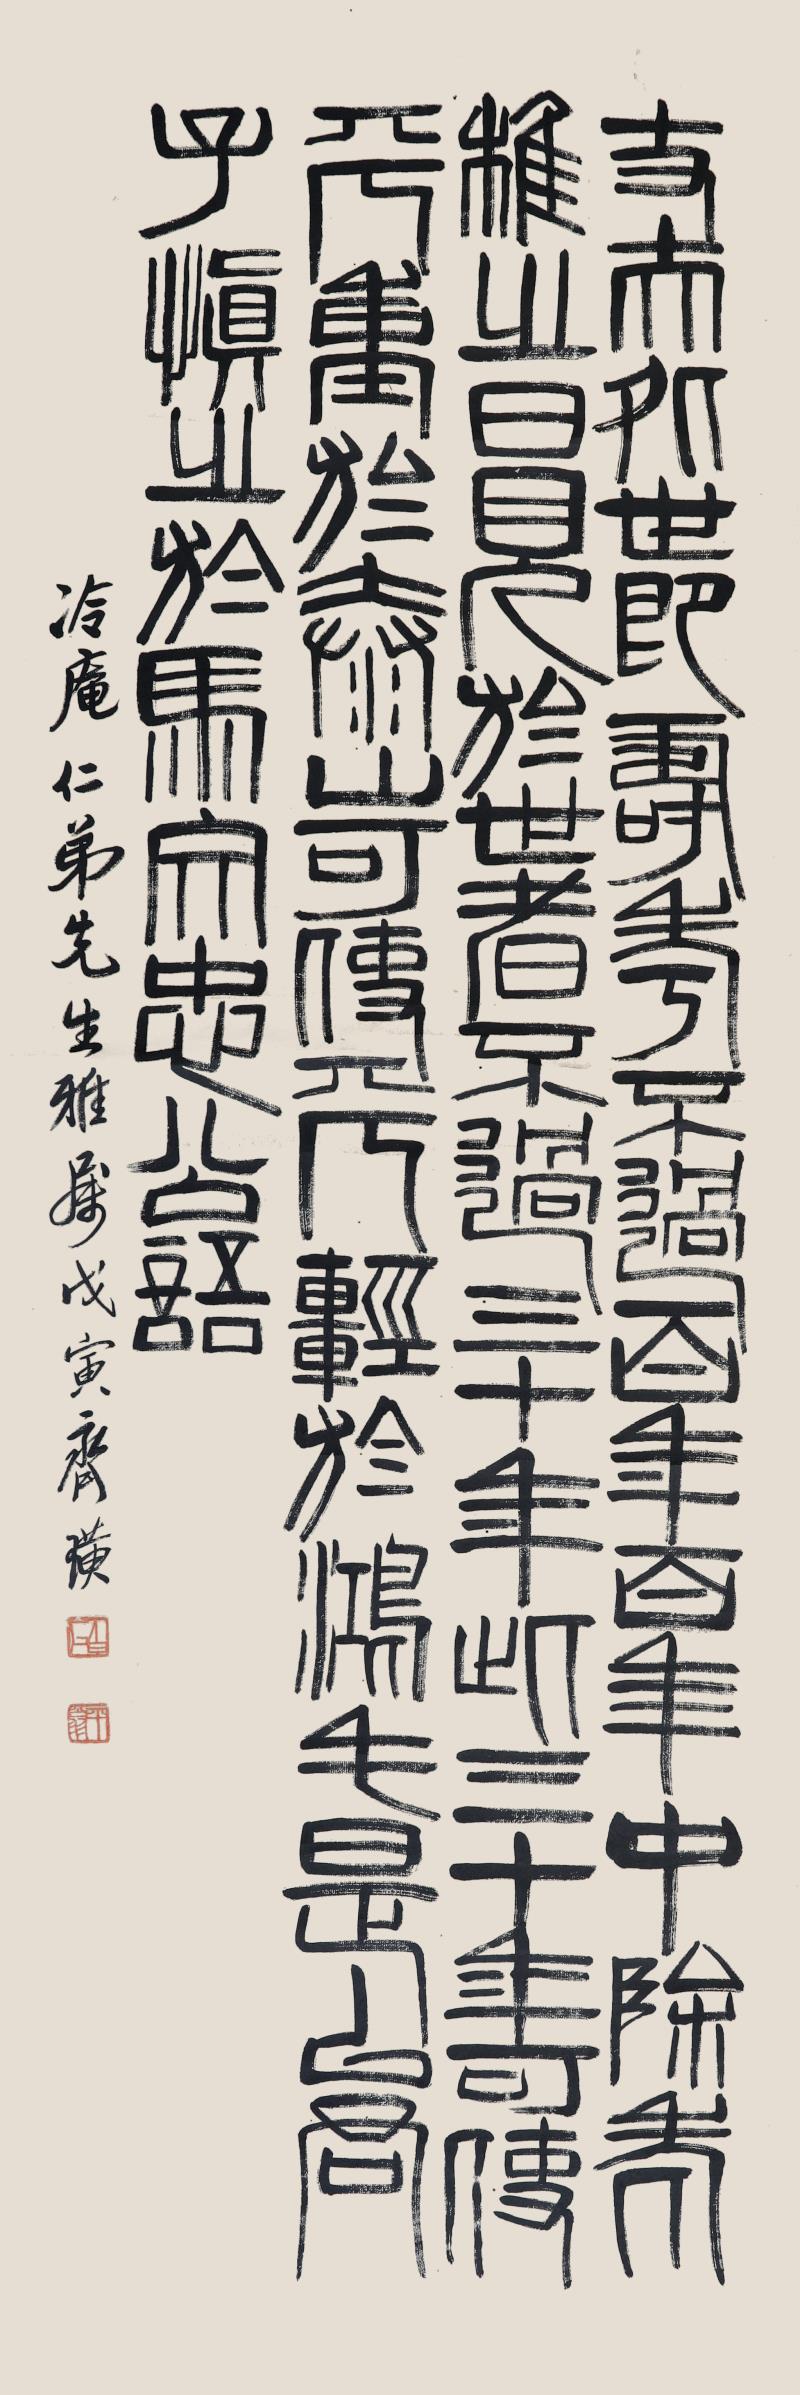 丈夫処世即壽考不過百年百年中除老
稚之日見於世者不過三十年此三十年可使
其人重於泰山可使其人輕於鴻毛是以君
子慎之於馬文忠公語
冷庵仁弟先生雅属戊寅齊璜